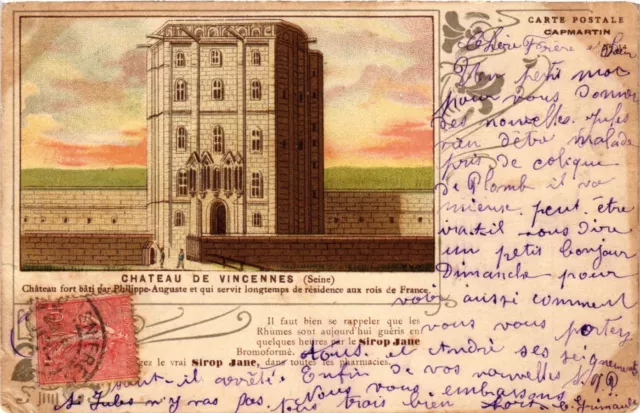 CARTE POSTALE
CAPMARTIN
Chère Frère et Sœur
Un petit mot
pour vous donner
des nouvelles. Jules
vien d'être malade
pris de colique
de Plomb il va
mieux. peut être
vat il vous dire
un petit bonjour
Dimanche pour
voir aussi comment
vous vous portez
tous. et André ses
CHATEAU DE VINCENNES (Seine)
Château fort bâti par Philippe-Auguste et qui servit longtemps de résidence aux rois de France.
Il faut bien se rappeler que les
Rhumes sont aujourd'hui guéris en
quelques heures par le Sirop Jane
Bromoformé.
gez le vrai Sirop Jane, dans toutes les pharmacies.
il arrête. Enfin de vos nouvelles S.V.P.
Jules n'y va pas. Nous vous embrassons
tous très bien